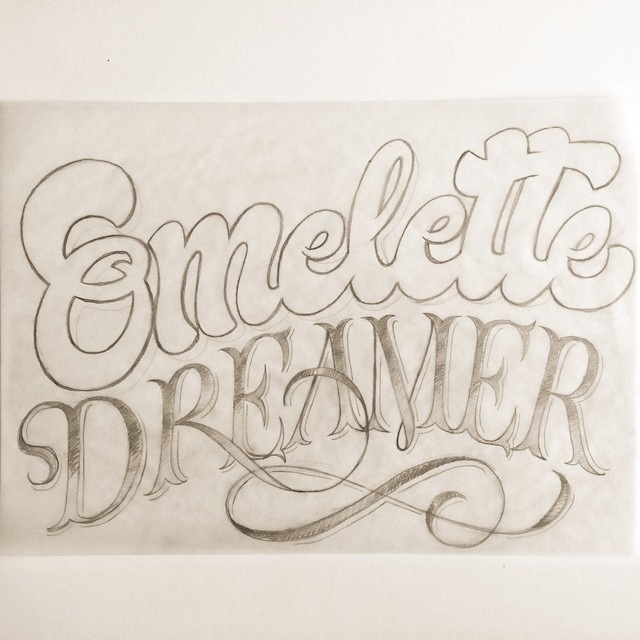 Emelette
DREAMER